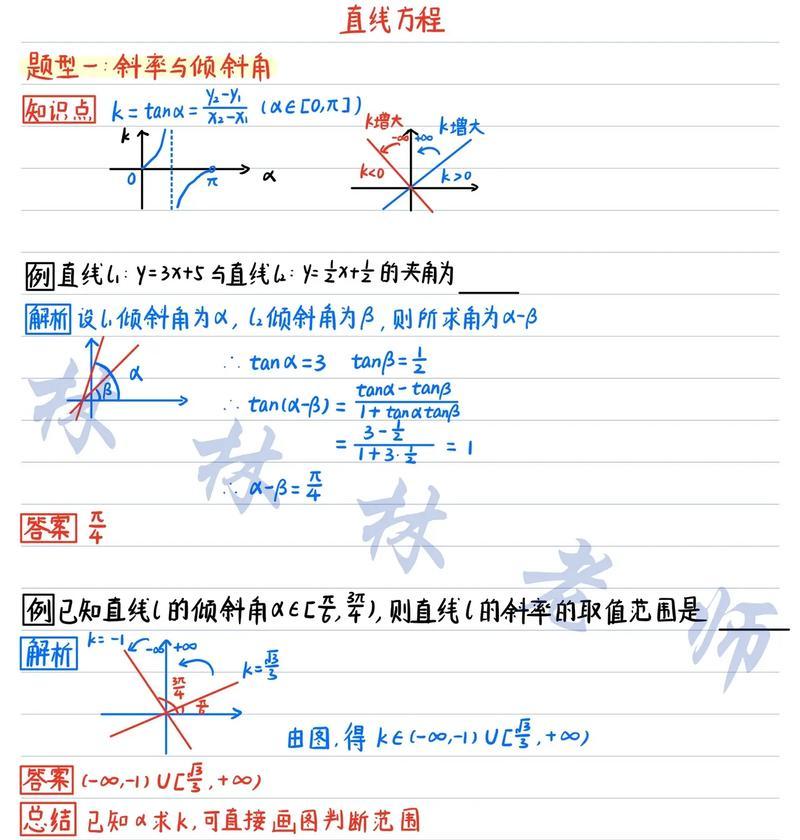 直线方程
题型一:斜率与倾斜角
知识点 k=tanα=\frac{y₂-y₁}{x₂-x₁} (α∈[0,π])
k 0 π α
k增大 -∞ +∞ k增大
k<0 k>0
例 直线l₁: y=3x+5 与直线l₂: y=\frac{1}{2}x+\frac{1}{2} 的夹角为____
解析 设l₁倾斜角为α, l₂倾斜角为β, 则所求角为α-β
α β
∴ tanα=3 tanβ=\frac{1}{2}
∴ tan(α-β)=\frac{tanα-tanβ}{1+tanαtanβ}
=\frac{3-\frac{1}{2}}{1+3·\frac{1}{2}}=1
∴ α-β=\frac{π}{4}
答案 \frac{π}{4}
例 已知直线l的倾斜角α∈[\frac{π}{6},\frac{3π}{4}),则直线l的斜率的取值范围是____
解析 k=-1 -∞ +∞ k=\frac{√3}{3}
\frac{3π}{4} \frac{π}{6}
由图,得 k∈(-∞,-1)∪[\frac{√3}{3},+∞)
答案 (-∞,-1)∪[\frac{√3}{3},+∞)
总结 已知α求k,可直接画图判断范围
林林林老师